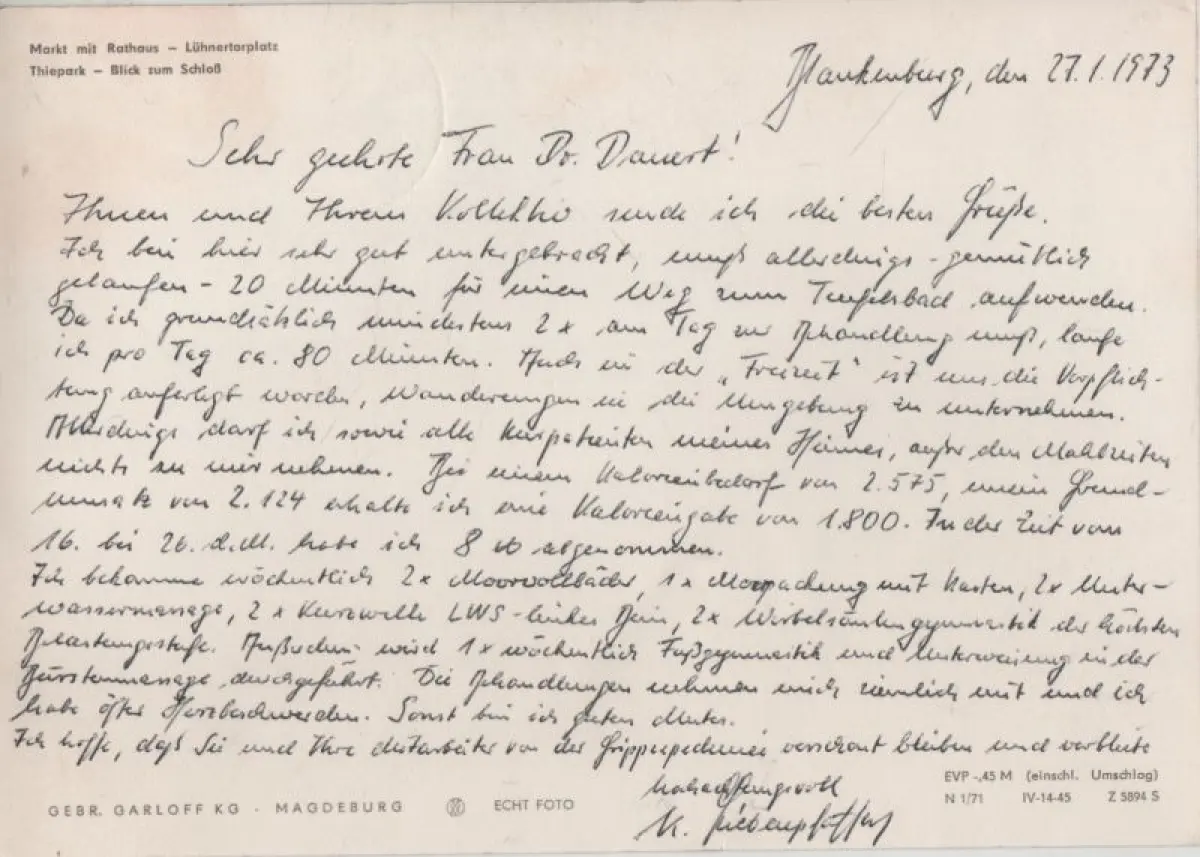 Markt mit Rathaus – Lühnertorplatz
Thiepark – Blick zum Schloß
Blankenburg, den 27.1.1973
Sehr geehrte Frau Dr. Dauert!
Ihnen und Ihrem Kollektiv sende ich die besten Grüße.
Ich bin hier sehr gut untergebracht, muß allerdings - gemütlich
gelaufen - 20 Minuten für einen Weg zum Teufelsbad aufwenden.
Da ich grundsätzlich mindestens 2 x am Tag zur Behandlung muß, laufe
ich pro Tag ca. 80 Minuten. Auch in der „Freizeit" ist uns die Verpflich-
tung auferlegt worden, Wanderungen in die Umgebung zu unternehmen.
Allerdings darf ich sowie alle Kurpatienten meines Heimes, außer den Mahlzeiten
nichts zu mir nehmen. Bei einem Kalorienbedarf von 2.575, mein Grund-
umsatz von 2.124 erhalte ich eine Kalorieneingabe von 1.800. In der Zeit vom
16. bis 26. d.M. habe ich 8 abgenommen.
Ich bekomme wöchentlich 2x Moorvollbäder, 1 x Moorpackung mit Kasten, 2x Unter-
wassermassage, 2 x Kurzwelle LWS-linkes Bein, 2x Wirbelsäulengymnastik der höchsten
Belastungsstufe. Außerdem wird 1 x wöchentlich Fußgymnastik und Unterweisung in der
Bürstenmassage durchgeführt. Die Behandlungen nehmen mich ziemlich mit und ich
habe öfter Herzbeschwerden. Sonst bin ich guten Mutes.
Ich hoffe, daß Sie und Ihre Mitarbeiter von der Grippeepedemie verschont bleiben und verbleibe
hochachtungsvoll
K.
GEBR. GARLOFF KG · MAGDEBURG ECHT FOTO
EVP -,45 M (einschl. Umschlag)
N 1/71 IV-14-45 Z 5894 S